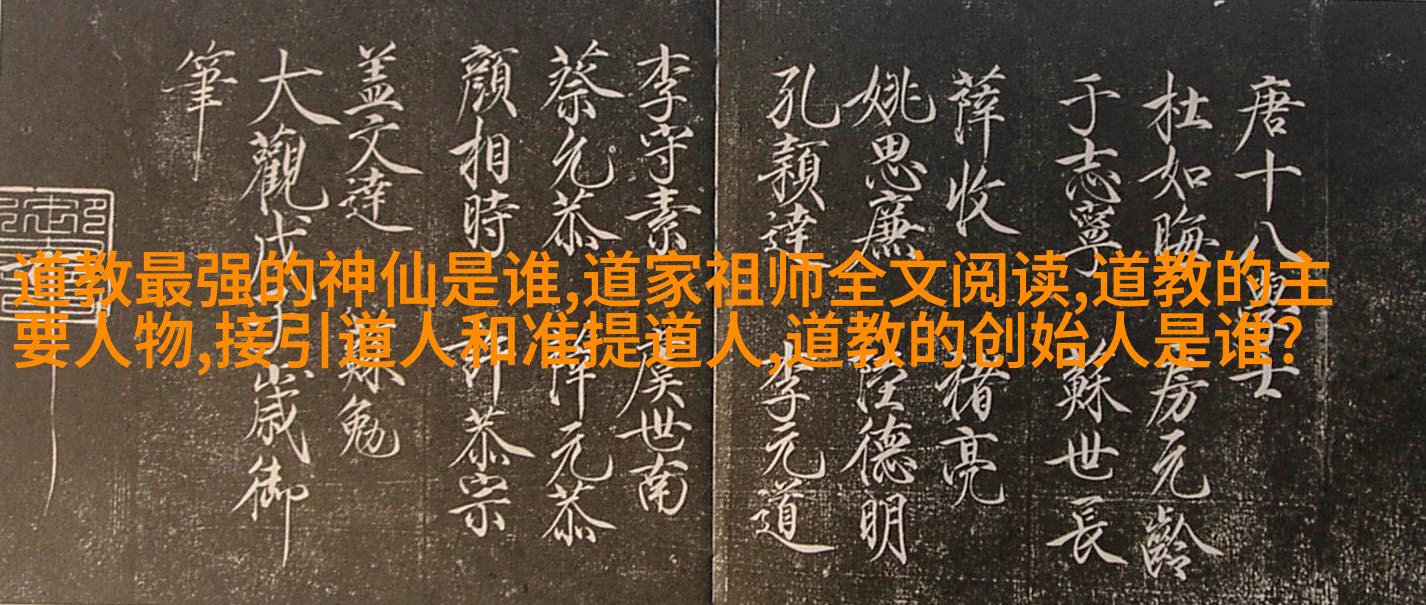 道教最强的神仙是谁,道家祖师全文阅读,道教的主
要人物,接引道人和准提道人,道教的创始人是谁?
唐十八學士
杜如晦 房元齡
于志寧 蘇世長
薛收 褚亮
姚思廉 陸德明
孔穎達 李元道
李守素 虞世南
蔡允恭 薛元恭
顏相時 許恭宗
盖文達 蘇勉
大觀戊子歲御
筆